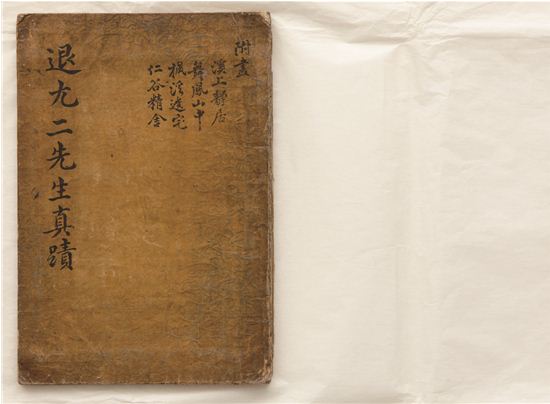 退尤二先生真蹟
附畫
溪上靜居
舞鳳山中
楓溪遺宅
仁谷精舍